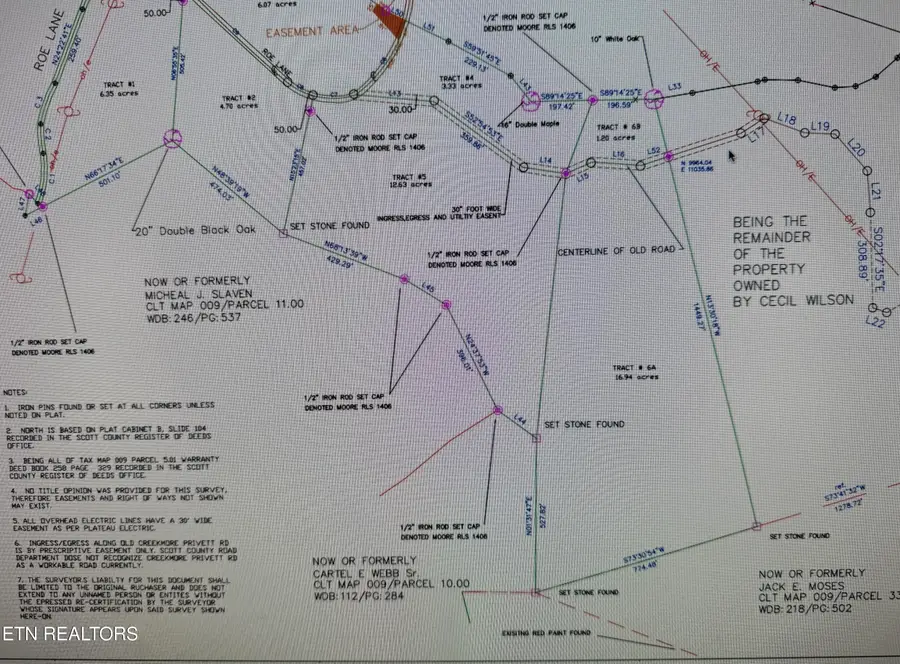 50.00
6.07 acres
ROE LANE
N24°22'41"E
259.40
EASEMENT AREA
L51
S59°51'45"E
229.13'
1/2" IRON ROD SET CAP
DENOTED MOORE RLS 1406
10" White Oak
OH/E
TRACT #1
6.35 acres
TRACT #2
4.70 acres
ROE LANE
TRACT #4
3.33 acres
L43
30.00
S89°14'25"E
197.42'
S89°14'25"E
196.59'
L33
16" Double Maple
TRACT # 6B
1.20 acres
50.00
1/2" IRON ROD SET CAP
DENOTED MOORE RLS 1406
359.86'
L14
L15
L16
L52
L17
L18
L19
L20
L21
L22
S02°17'35"E
308.89'
N 9964.04
E 11035.86
N66°17'34"E
501.10'
N48°39'19"W
474.03'
TRACT #5
12.63 acres
30" FOOT WIDE
INGRESS,EGRESS AND UTILITY EASENT
L47
L46
20" Double Black Oak
SET STONE FOUND
N68°13'39"W
429.29'
1/2" IRON ROD SET CAP
DENOTED MOORE RLS 1406
CENTERLINE OF OLD ROAD
BEING THE
REMAINDER
OF THE
PROPERTY
OWNED
BY CECIL WILSON
NOW OR FORMERLY
MICHEAL J. SLAVEN
CLT MAP 009/PARCEL 11.00
WDB:246/PG:537
L45
N24°37'53"W
396.01'
N13°30'18"W
1449.27'
1/2" IRON ROD SET CAP
DENOTED MOORE RLS 1406
TRACT # 6A
16.94 acres
1/2" IRON ROD SET CAP
DENOTED MOORE RLS 1406
L44
SET STONE FOUND
NOTES:
1. IRON PINS FOUND OR SET AT ALL CORNERS UNLESS
NOTED ON PLAT.
2. NORTH IS BASED ON PLAT CABINET B, SLIDE 104
RECORDED IN THE SCOTT COUNTY REGISTER OF DEEDS
OFFICE.
3. BEING ALL OF TAX MAP 009 PARCEL 5.01 WARRANTY
DEED BOOK 258 PAGE 329 RECORDED IN THE SCOTT
COUNTY REGISTER OF DEEDS OFFICE.
4. NO TITLE OPINION WAS PROVIDED FOR THIS SURVEY,
THEREFORE EASEMENTS AND RIGHT OF WAYS NOT SHOWN
MAY EXIST.
5. ALL OVERHEAD ELECTRIC LINES HAVE A 30' WIDE
EASEMENT AS PER PLATEAU ELECTRIC.
6. INGRESS/EGRESS ALONG OLD CREEKMORE PRIVETT RD
IS BY PRESCRIPTIVE EASEMENT ONLY. SCOTT COUNTY ROAD
DEPARTMENT DOSE NOT RECOGNIZE CREEKMORE PRIVETT RD
AS A WORKABLE ROAD CURRENTLY.
7. THE SURVEYORS LIABILTY FOR THIS DOCUMENT SHALL
BE LIMITED TO THE ORIGINAL RUCHASER AND DOES NOT
EXTEND TO ANY UNNAMED PERSON OR ENTITES WITHOUT
THE EPRESSED RE-CERTIFICATION BY THE SURVEYOR
WHOSE SIGNATURE APPEARS UPON SAID SURVEY SHOWN
HERE-ON.
1/2" IRON ROD SET CAP
DENOTED MOORE RLS 1406
N01°31'47"E
527.82'
ref.
S73°41'32"W
1278.72'
SET STONE FOUND
S73°30'54"W
774.48'
NOW OR FORMERLY
CARTEL E WEBB Sr.
CLT MAP 009/PARCEL 10.00
WDB:112/PG:284
SET STONE FOUND
NOW OR FORMERLY
JACK E. MOSES
CLT MAP 009/PARCEL 33
WDB:218/PG:502
EXISTING RED PAINT FOUND
ETN REALTORS